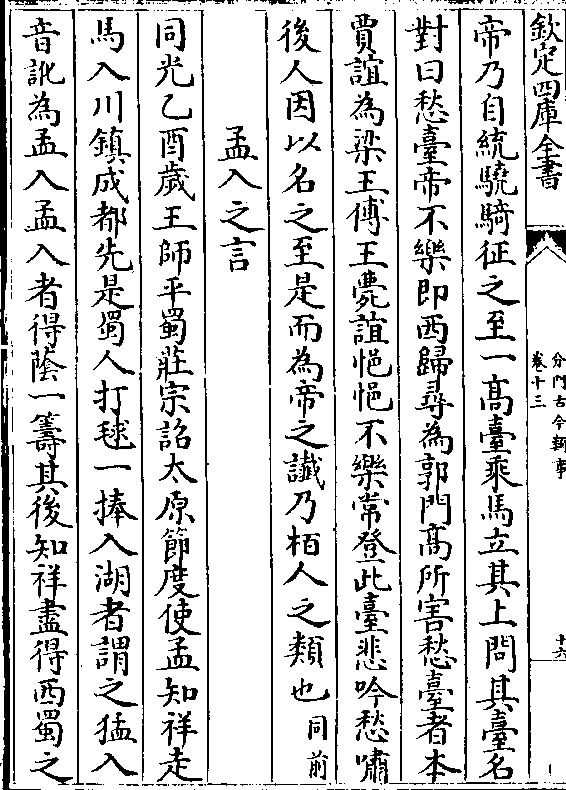 欽定四庫全書
分門古今類事
卷十三
十六
帝乃自統驍騎征之至一高臺乘馬立其上問其臺名
對曰愁臺帝不樂即西歸尋為郭門高所害愁臺者本
賈誼為梁王傅王薨誼悒悒不樂常登此臺悲吟愁嘯
後人因以名之至是而為帝之讖乃栢人之類也同前
孟入之言
同光乙酉歲王師平蜀莊宗詔太原節度使孟知祥走
馬入川鎮成都先是蜀人打毬一捧入湖者謂之猛入
音訛為孟入孟入者得蔭一籌其後知祥盡得西蜀之